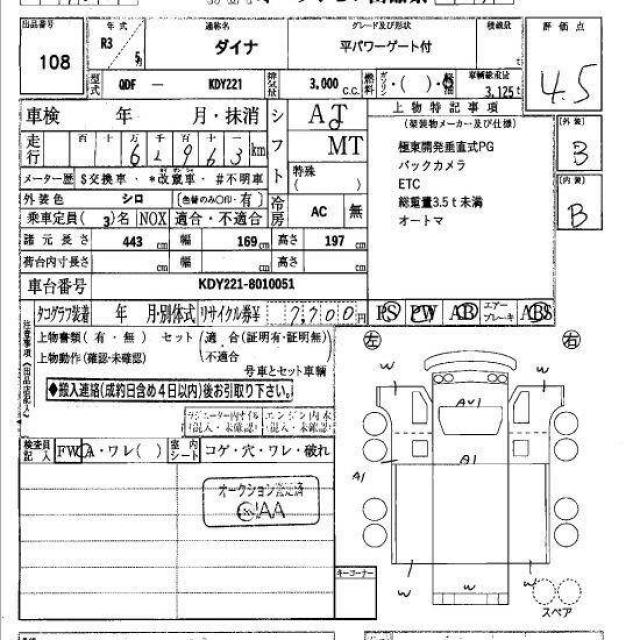 出品番号
108
年式
R3 5月
通称名
ダイナ
グレード及び形状
平パワーゲート付
積載量
t
評価点
4.5
型式
QDF － KDY221
排気量
3,000 c.c.
燃料
ガソリン・( )・軽油
車輌総重量
3.125t
車検 年 月・抹消
走行
百 十 万 千 百 十 一
6 2 9 6 3 km
メーター歴 $交換車・*改竄車・#不明車
外装色 シロ [色替のみ○印・有]
乗車定員 ( 3 )名 NOX 適合・不適合
諸元長さ 443 cm 幅 169 cm 高さ 197 cm
荷台内寸長さ cm 幅 cm 高さ cm
車台番号 KDY221-8010051
シフト
AT
MT
特殊
( )
冷房
AC 無
上物特記事項
(架装物メーカー及び仕様)
極東開発垂直式PG
バックカメラ
ETC
総重量3.5ｔ未満
オートマ
[外装]
B
[内装]
B
タコグラフ装着 年 月・別体式 リサイクル券¥ 7,700円
PS PW AB エアーブレーキ ABS
注意事項(出品店記入)
上物書類 (有・無) セット (適合(証明有・証明無)
上物動作 (確認・未確認) (不適合
号車とセット車輌
◆搬入連絡(成約日含め4日以内)後お引取り下さい。
(混入・未確認) (混入・未確認)
検査員記入
FWA・ワレ( )
室内シート
コゲ・穴・ワレ・破れ
オークション鑑定済
CIAA
キーコーナー
左
右
w
w
AU1
A1
A1
w
w
w
スペア